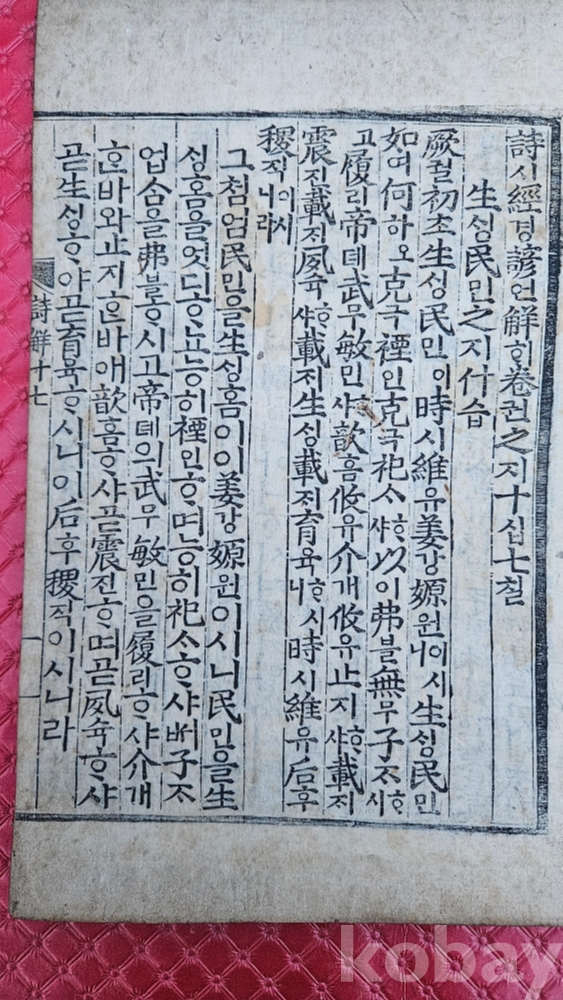 詩시經경諺언解ᄒᆡ卷권之지十십七칠
生ᄉᆡᆼ民민之지什습
厥궐初초生ᄉᆡᆼ民민이時시維유姜강嫄원이시니生ᄉᆡᆼ民민
如여何하오克극禋인克극祀ᄉᆞᄒᆞ샤以이弗블無무子ᄌᆞᄒᆞ시
고履리帝뎨武무敏민ᄒᆞ샤歆흠攸유介개攸유止지ᄒᆞ샤載ᄌᆡ
震진載ᄌᆡ夙슉ᄒᆞ샤載ᄌᆡ生ᄉᆡᆼ載ᄌᆡ育육ᄒᆞ시니時시維유后후
稷직이시니라
그처엄民민을生ᄉᆡᆼ홈이이姜강嫄원이시니民민을生
ᄉᆡᆼ홈을엇디ᄒᆞ뇨능히禋인ᄒᆞ며능히祀ᄉᆞᄒᆞ샤ᄡᅥ子ᄌᆞ
업슴을弗블ᄒᆞ시고帝뎨의武무敏민을履리ᄒᆞ샤介개
ᄒᆞᆫ바와止지ᄒᆞᆫ바애歆흠ᄒᆞ샤곧震진ᄒᆞ며곧夙슉ᄒᆞ샤
곧生ᄉᆡᆼᄒᆞ야곧育육ᄒᆞ시니이后후稷직이시니라
詩解十七
一
kobay